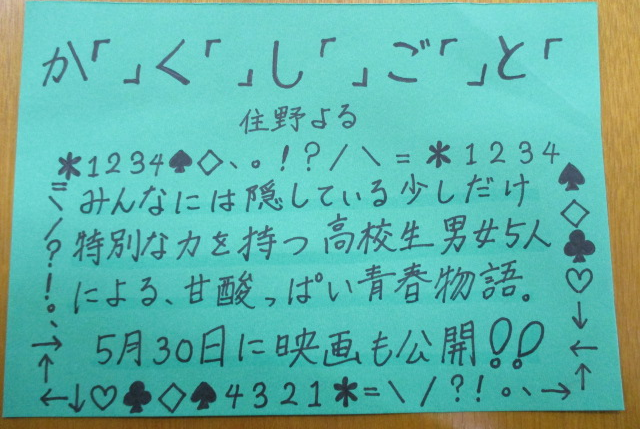 か「」く「」し「」ご「」と「
住野よる
*1234♠◇、。!?/\=*1234
みんなには隠している少しだけ
特別な力を持つ高校生男女5人
による、甘酸っぱい青春物語。
5月30日に映画も公開!!
=\/?!。、→↑
♠◇♣♡↓←↑
←↓♡♣◇♠4321*=\/?!。、→